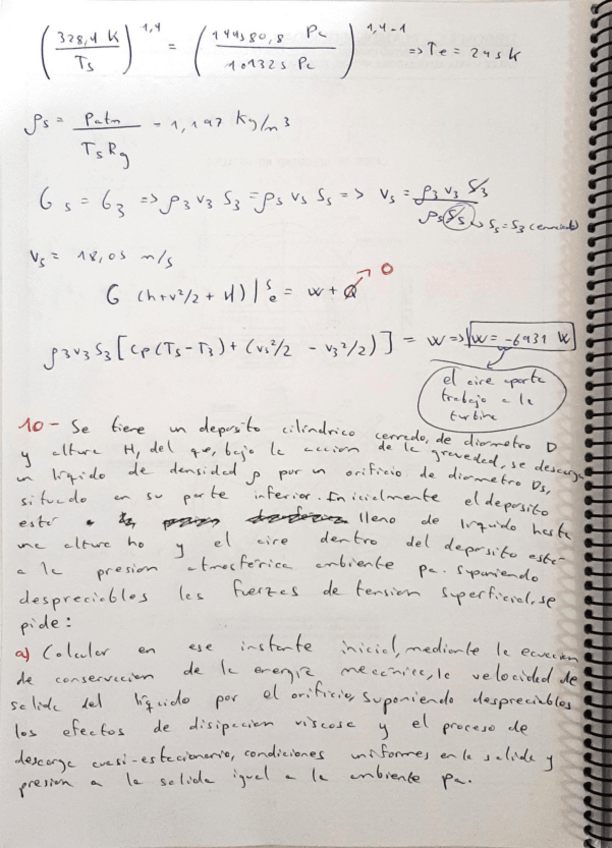 (328,4 K / Ts)^1,4 = (144580,8 Pa / 101325 Pa)^1,4-1 => Te = 245 K
ρs = Patm / Ts Rg = 1,197 Kg/m3
Gs = G3 => ρ3 v3 S3 = ρs vs Ss => vs = ρ3 v3 S3 / ρs Ss -> Ss = S3 (enunciado)
vs = 18,05 m/s
G (h+v²/2 + U)|se = w + Q → 0
ρ3v3S3 [Cp(Ts-T3) + (vs²/2 - v3²/2)] = w => w = -6931 W
el aire aporta
trabajo a la
turbina
10- Se tiene un deposito cilindrico cerrado, de diametro D
y altura H, del que, bajo la accion de la gravedad, se descarga
un líquido de densidad ρ por un orificio de diametro Ds,
situado en su parte inferior. Inicialmente el deposito
esta lleno de líquido hasta
una altura ho y el aire dentro del deposito esta
a la presion atmosférica ambiente pa. Suponiendo
despreciables las fuerzas de tension superficial, se
pide:
a) Calcular en ese instante inicial, mediante la ecuacion
de conservacion de la energia mecanica, la velocidad de
salida del líquido por el orificio, suponiendo despreciables
los efectos de disipacion viscosa y el proceso de
descarga cuasi-estacionario, condiciones uniformes en la salida y
presion a la salida igual a la ambiente pa.